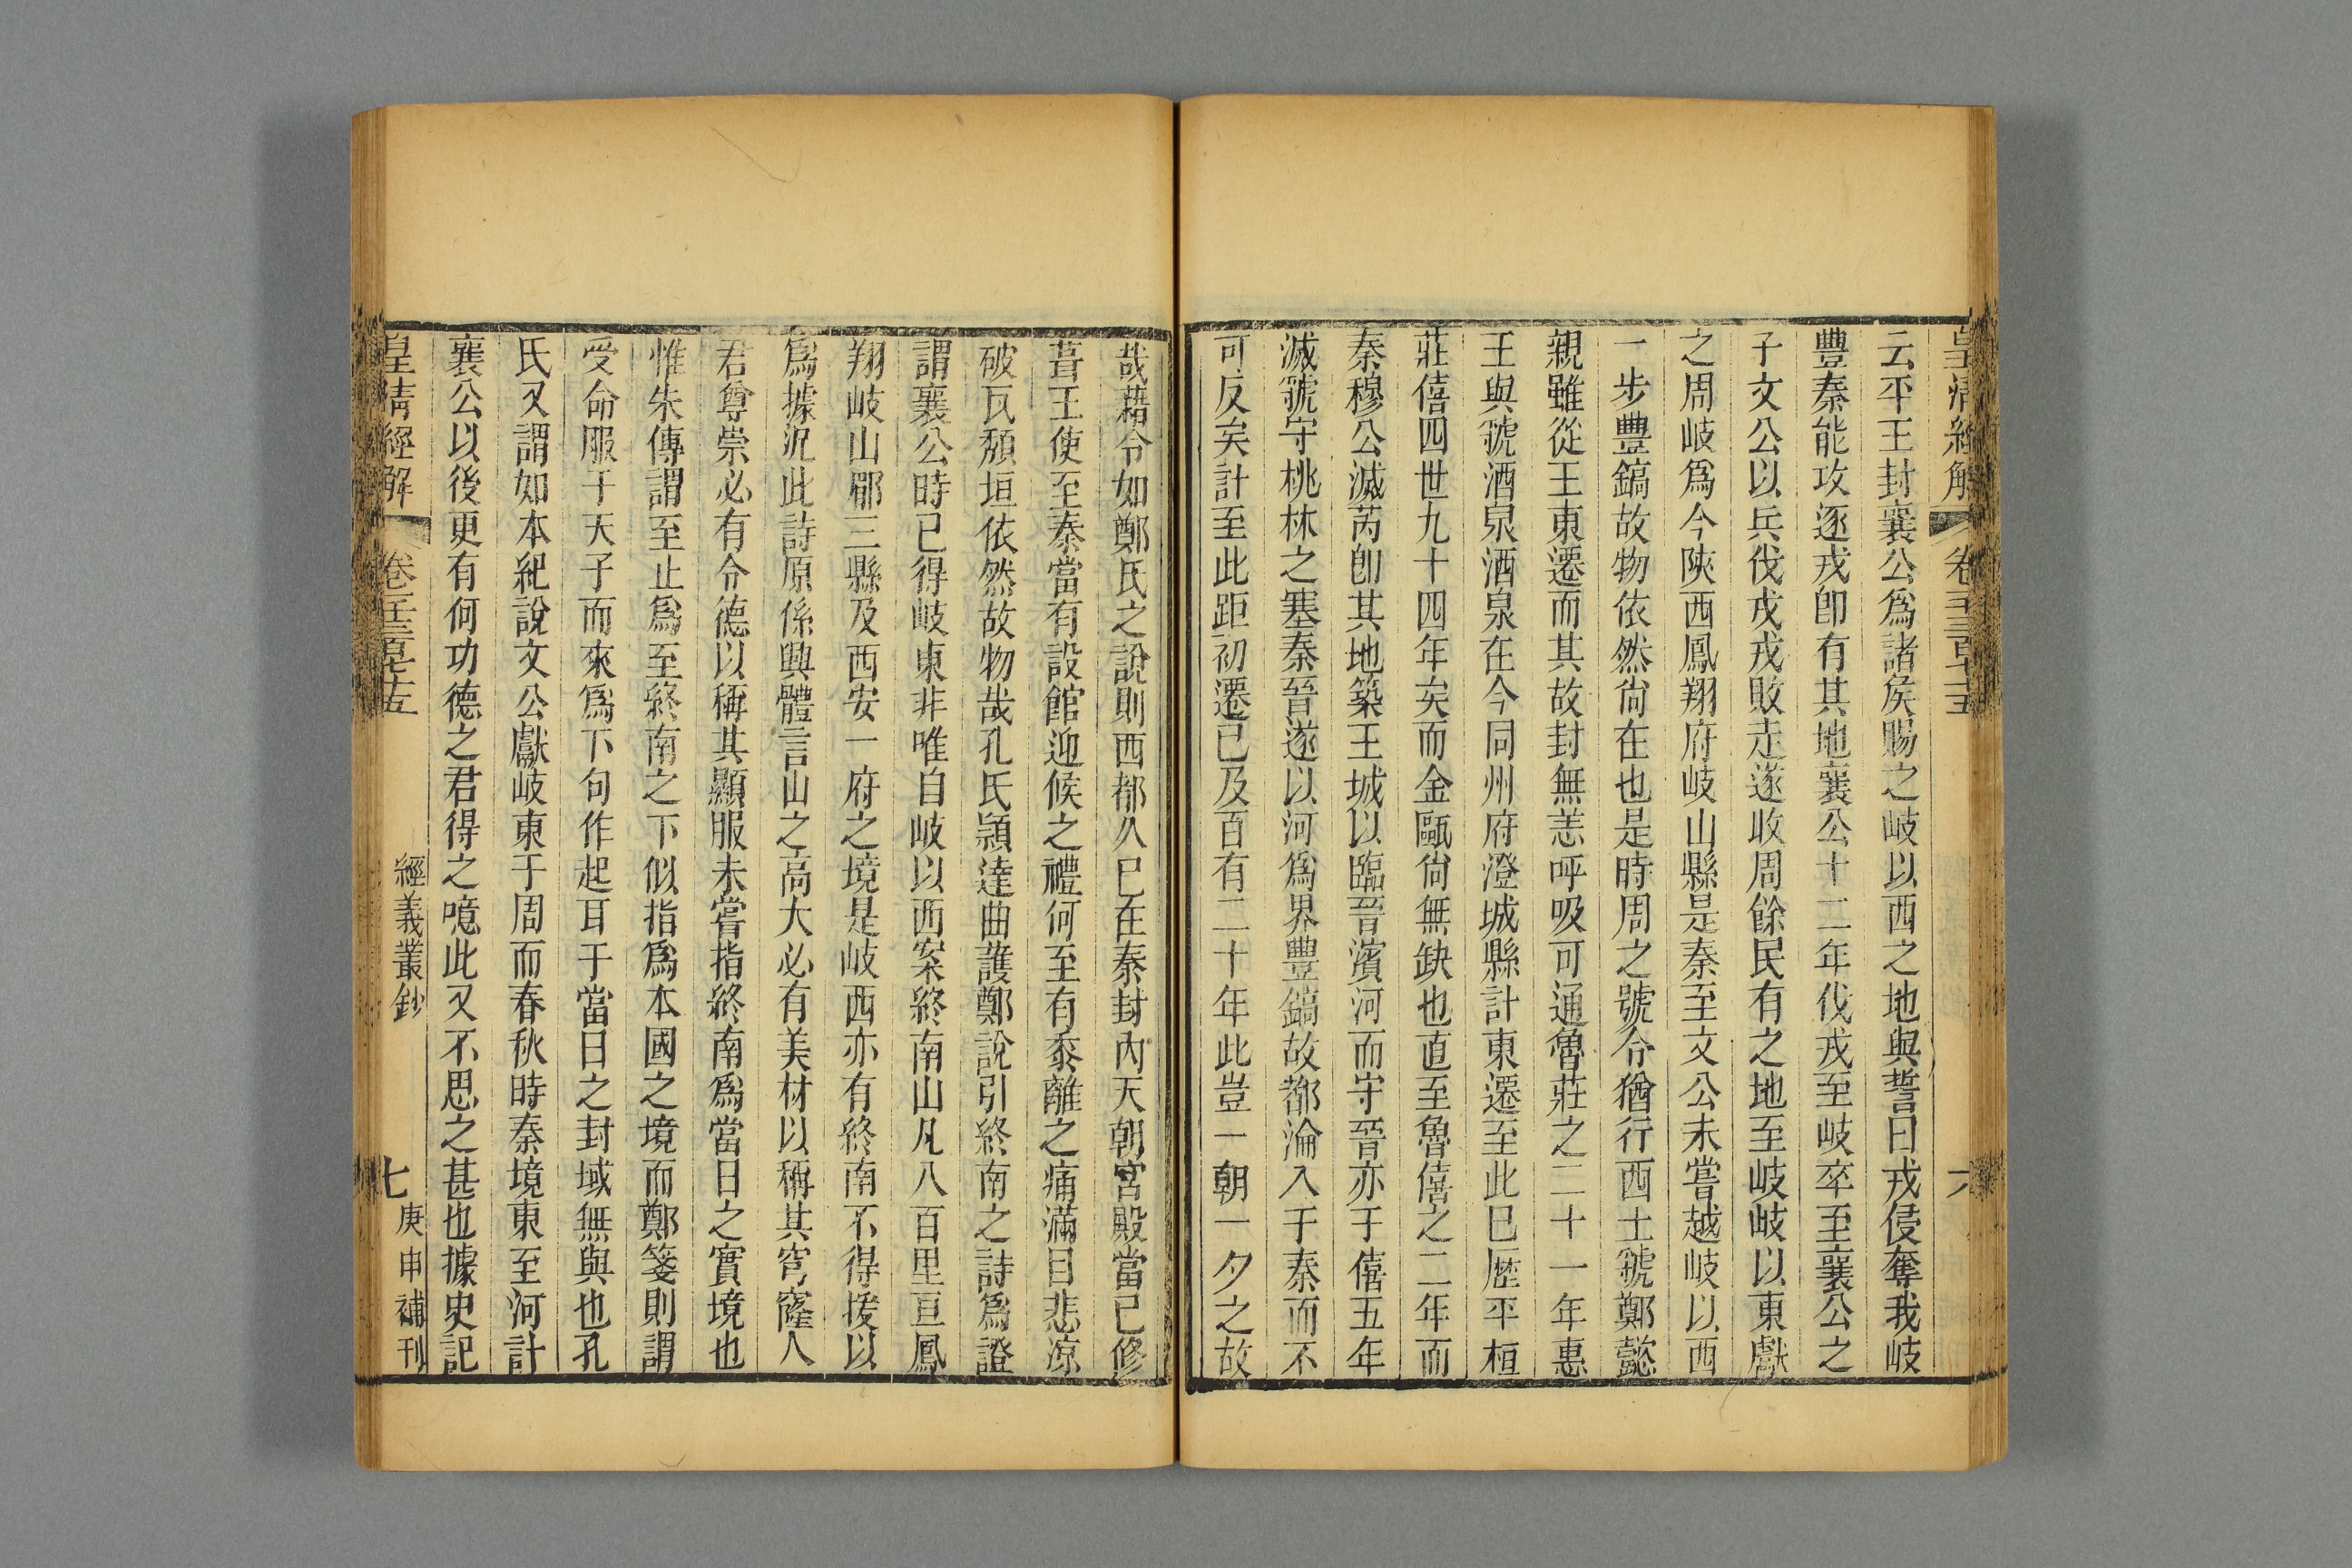 皇清經解 卷一千三百七十五 六
云平王封襄公爲諸矦賜之岐以西之地與誓曰戎侵奪我岐
豐秦能攻逐戎卽有其地襄公十二年伐戎至岐卒至襄公之
子文公以兵伐戎戎敗走遂收周餘民有之地至岐岐以東獻
之周岐爲今陝西鳳翔府岐山縣是秦至文公未嘗越岐以西
一步豐鎬故物依然尙在也是時周之號令猶行西土虢鄭懿
親雖從王東遷而其故封無恙呼吸可通魯莊之二十一年惠
王與虢酒泉酒泉在今同州府澄城縣計東遷至此巳歷平桓
莊僖四世九十四年矣而金甌尙無缺也直至魯僖之二年而
秦穆公滅芮卽其地築王城以臨晉濱河而守晉亦于僖五年
滅虢守桃林之塞秦晉遂以河爲界豐鎬故都淪入于秦而不
可反矣計至此距初遷已及百有二十年此豈一朝一夕之故
哉藉令如鄭氏之說則西都久巳在秦封內天朝宮殿當已修
葺王使至秦當有設館迎候之禮何至有黍離之痛滿目悲涼
破瓦頹垣依然故物哉孔氏穎達曲護鄭說引終南之詩爲證
謂襄公時已得岐東非唯自岐以西案終南山凡八百里亘鳳
翔岐山郿三縣及西安一府之境是岐西亦有終南不得援以
爲據況此詩原係興體言山之高大必有美材以稱其穹窿人
君尊崇必有令德以稱其顯服未嘗指終南爲當日之實境也
惟朱傳謂至止爲至終南之下似指爲本國之境而鄭箋則謂
受命服于天子而來爲下句作起耳于當日之封域無與也孔
氏又謂如本紀說文公獻岐東于周而春秋時秦境東至河計
襄公以後更有何功德之君得之噫此又不思之甚也據史記
皇清經解 卷一千三百七十五 經義叢鈔 七 庚申補刊